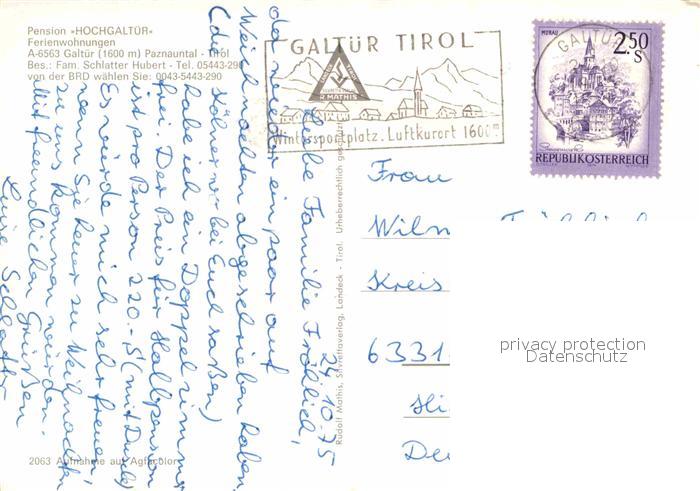 Pension »HOCHGALTÜR«
Ferienwohnungen
A-6563 Galtür (1600 m) Paznauntal - Tirol
Bes.: Fam. Schlatter Hubert - Tel. 05443-290
von der BRD wählen Sie: 0043-5443-290
GALTÜR TIROL
R. MATHIS
Wintersportplatz. Luftkurort 1600m
MURAU
2.50
S
REPUBLIK ÖSTERREICH
GALTÜR
24.10.75
Liebe Familie Fröhlich,
da wieder ein paar auf
Weihnachten abgeschrieben haben,
(die
bei Euch saßen)
habe ich ein Doppelzimmer
frei. Der Preis für Halbpension
ist pro Person 220.- S (mit Dusche)
Es würde mich sehr freuen,
wenn Sie heuer zu Weihnachten
zu uns kommen würden.
Mit freundlichen Grüßen
Luise Schlatter
Rudolf Mathis, Silvrettaverlag, Landeck - Tirol. Urheberrechtlich geschützt
2063 Aufnahme auf Agfacolor
Frau
Kreis
6331
privacy protection
Datenschutz